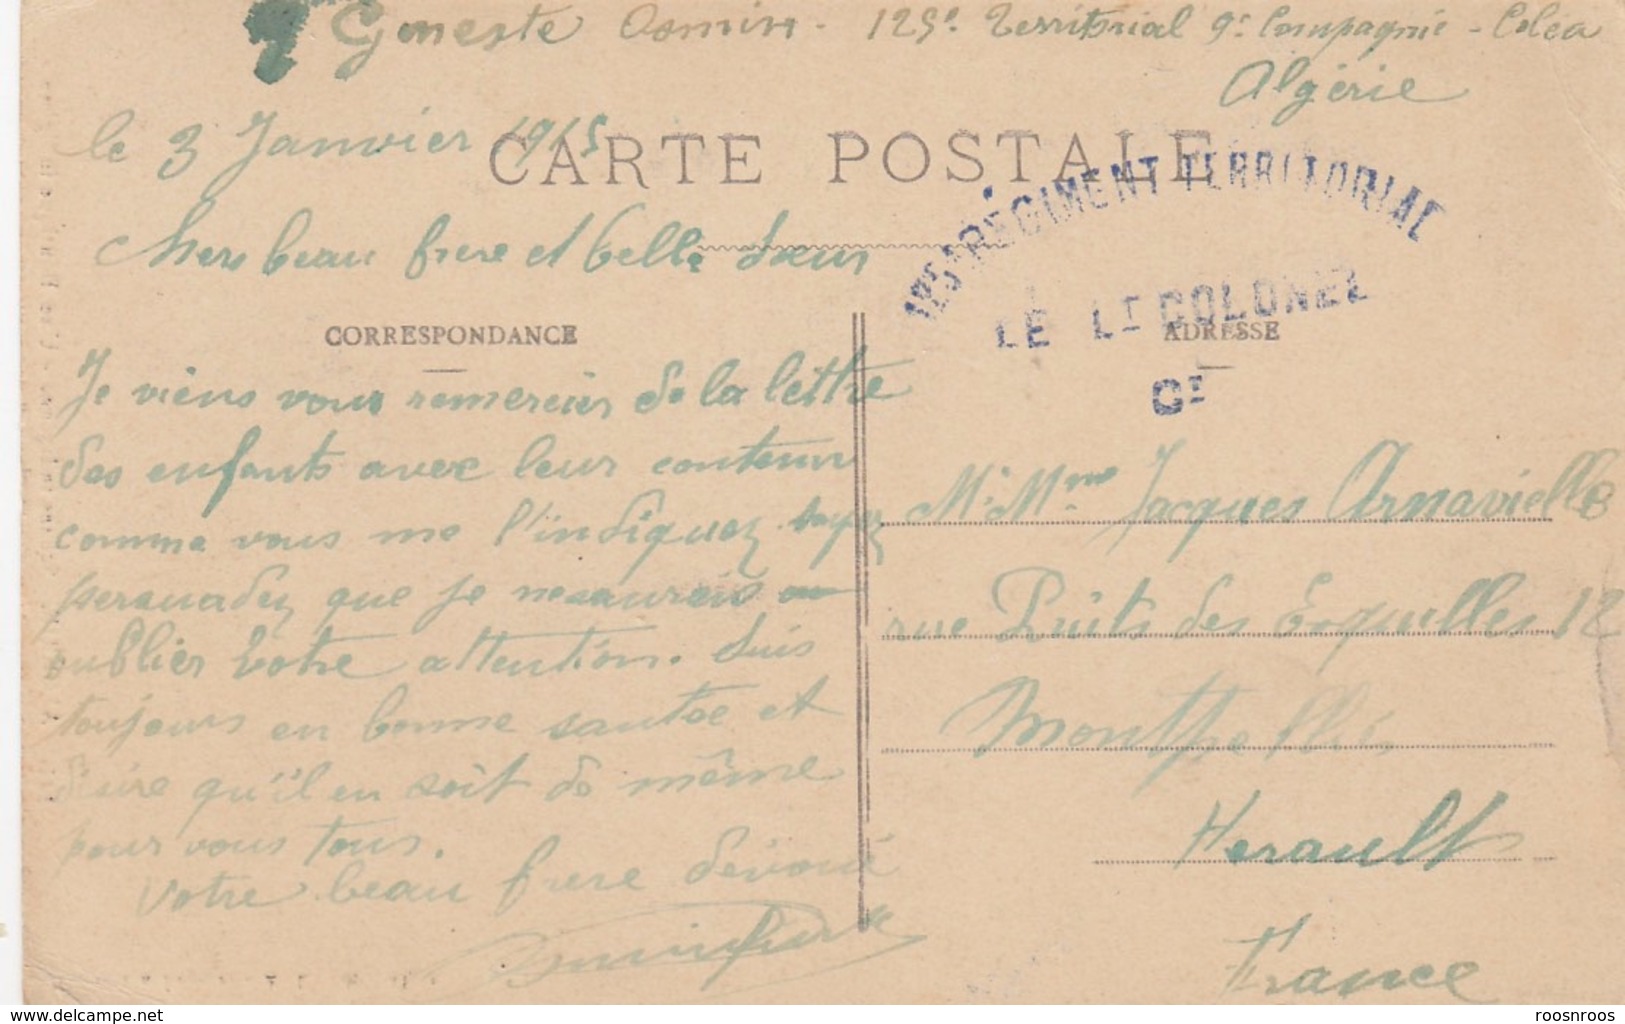 Geneste Osmin - 125e Territorial 9e Compagnie - Coléa
Algérie
le 3 Janvier 1915
CARTE POSTALE
125e REGIMENT TERRITORIAL
LE LT COLONEL
CT
Chers beau frere et belle sœur
CORRESPONDANCE
ADRESSE
Je viens vous remercier de la lettre
des enfants avec leur contenu
comme vous me l'indiquez soyez
persuadez que je ne saurais
oublier votre attention. Suis
toujours en bonne santée et
désire qu'il en soit de même
pour vous tous.
Votre beau frere dévoué
Mr Mme Jacques Arnavielle
rue Puits des Esquilles 12
Montpellier
Herault
France
roosnroos
www.delcampe.net